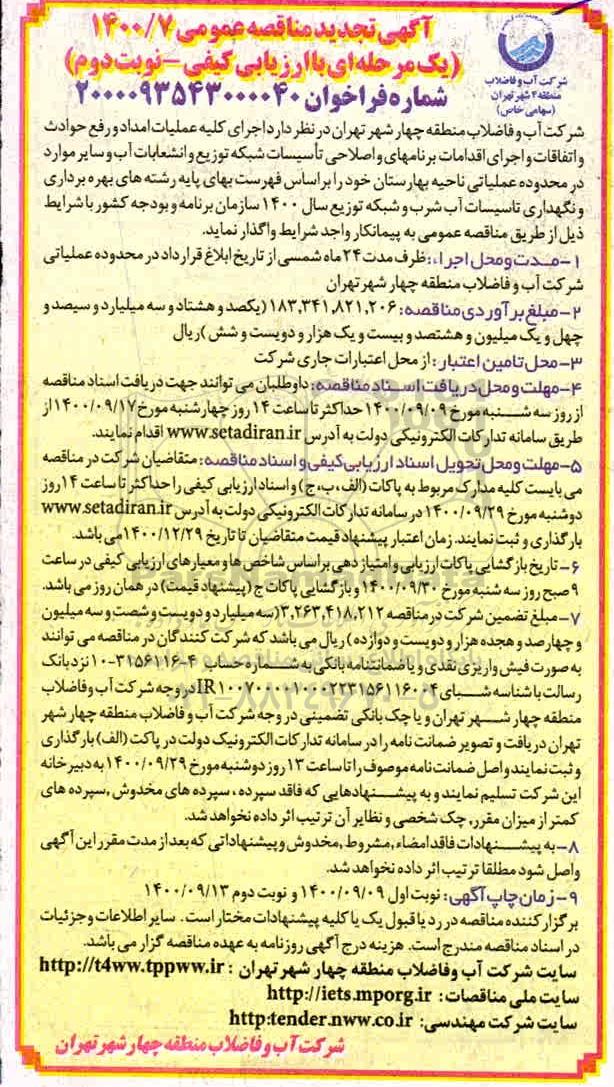 آگهی تجدید مناقصه عمومی ۱۴۰۰/۷
(یک مرحله‌ای با ارزیابی کیفی - نوبت دوم)
شماره فراخوان ۲۰۰۰۰۹۳۵۴۳۰۰۰۰۴۰
شرکت آب و فاضلاب
منطقه ۴ شهر تهران
(سهامی خاص)
شرکت آب و فاضلاب منطقه چهار شهر تهران در نظر دارد اجرای کلیه عملیات امداد و رفع حوادث
و اتفاقات و اجرای اقدامات برنامه‌ای و اصلاحی تأسیسات شبکه توزیع و انشعابات آب و سایر موارد
در محدوده عملیاتی ناحیه بهارستان خود را بر اساس فهرست بهای پایه رشته های بهره برداری
و نگهداری تاسیسات آب شرب و شبکه توزیع سال ۱۴۰۰ سازمان برنامه و بودجه کشور با شرایط
ذیل از طریق مناقصه عمومی به پیمانکار واجد شرایط واگذار نماید.
۱- مدت و محل اجراء: ظرف مدت ۲۴ ماه شمسی از تاریخ ابلاغ قرارداد در محدوده عملیاتی
شرکت آب و فاضلاب منطقه چهار شهر تهران
۲- مبلغ برآوردی مناقصه: ۱۸۳,۳۴۱,۸۲۱,۲۰۶ (یکصد و هشتاد و سه میلیارد و سیصد و
چهل و یک میلیون و هشتصد و بیست و یک هزار و دویست و شش) ریال
۳- محل تامین اعتبار: از محل اعتبارات جاری شرکت
۴- مهلت و محل دریافت اسناد مناقصه: داوطلبان می توانند جهت دریافت اسناد مناقصه
از روز سه شنبه مورخ ۱۴۰۰/۰۹/۰۹ حداکثر تا ساعت ۱۴ روز چهارشنبه مورخ ۱۴۰۰/۰۹/۱۷ از
طریق سامانه تدارکات الکترونیکی دولت به آدرس www.setadiran.ir اقدام نمایند.
۵- مهلت و محل تحویل اسناد ارزیابی کیفی و اسناد مناقصه: متقاضیان شرکت در مناقصه
می بایست کلیه مدارک مربوط به پاکات (الف، ب، ج) و اسناد ارزیابی کیفی را حداکثر تا ساعت ۱۴ روز
دوشنبه مورخ ۱۴۰۰/۰۹/۲۹ در سامانه تدارکات الکترونیکی دولت به آدرس www.setadiran.ir
بارگذاری و ثبت نمایند. زمان اعتبار پیشنهاد قیمت متقاضیان تا تاریخ ۱۴۰۰/۱۲/۲۹ می باشد.
۶- تاریخ بازگشایی پاکات ارزیابی و امتیازدهی بر اساس شاخص ها و معیارهای ارزیابی کیفی در ساعت
۹ صبح روز سه شنبه مورخ ۱۴۰۰/۰۹/۳۰ و بازگشایی پاکات ج (پیشنهاد قیمت) در همان روز می باشد.
۷- مبلغ تضمین شرکت در مناقصه ۳,۲۶۳,۴۱۸,۲۱۲ (سه میلیارد و دویست و شصت و سه میلیون
و چهارصد و هجده هزار و دویست و دوازده) ریال می باشد که شرکت کنندگان در مناقصه می توانند
به صورت فیش واریزی نقدی و یا ضمانتنامه بانکی به شماره حساب ۴-۳۱۵۶۱۱۶-۱۰ نزد بانک
رسالت با شناسه شبای در وجه شرکت آب و فاضلاب
منطقه چهار شهر تهران و یا چک بانکی تضمینی در وجه شرکت آب و فاضلاب منطقه چهار شهر
تهران دریافت و تصویر ضمانت نامه را در سامانه تدارکات الکترونیک دولت در پاکت (الف) بارگذاری
و ثبت نمایند و اصل ضمانت نامه موصوف را تا ساعت ۱۳ روز دوشنبه مورخ ۱۴۰۰/۰۹/۲۹ به دبیرخانه
این شرکت تسلیم نمایند و به پیشنهادهایی که فاقد سپرده، سپرده های مخدوش، سپرده های
کمتر از میزان مقرر، چک شخصی و نظایر آن ترتیب اثر داده نخواهد شد.
۸- به پیشنهادات فاقد امضاء، مشروط، مخدوش و پیشنهاداتی که بعد از مدت مقرر این آگهی
واصل شود مطلقا ترتیب اثر داده نخواهد شد.
۹- زمان چاپ آگهی: نوبت اول ۱۴۰۰/۰۹/۰۹ و نوبت دوم ۱۴۰۰/۰۹/۱۳
برگزار کننده مناقصه در رد یا قبول یک یا کلیه پیشنهادات مختار است. سایر اطلاعات و جزئیات
در اسناد مناقصه مندرج است. هزینه درج آگهی روزنامه به عهده مناقصه گزار می باشد.
سایت شرکت آب وفاضلاب منطقه چهار شهر تهران : http://t4ww.tppww.ir
سایت ملی مناقصات: http://iets.mporg.ir
سایت شرکت مهندسی: http:tender.nww.co.ir
شرکت آب و فاضلاب منطقه چهار شهر تهران